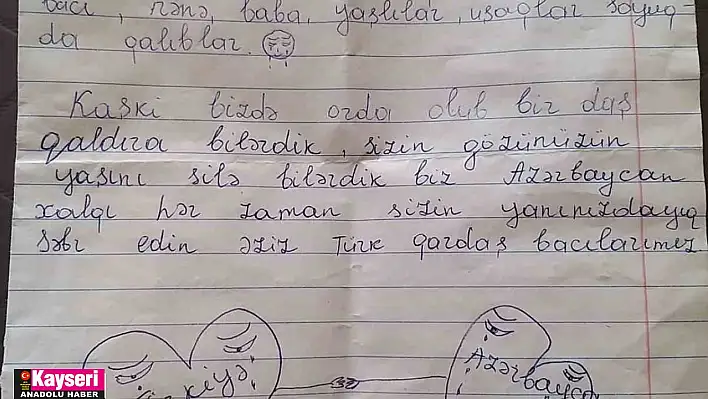 bacı, nənə, baba, yaşlılar, uşaqlar soyuq-
da qalıblar.
Kaski bizdə orda olub bir daş
qaldıra bilərdik, sizin gözünüzün
yasını silə bilərdik biz Azərbaycan
xalqı hər zaman sizin yanınızdayıq
Səbr edin əziz Türk qardaş bacılarımız.
kiyə,
Azərbayca
Kayseri
ANADOLU HABER